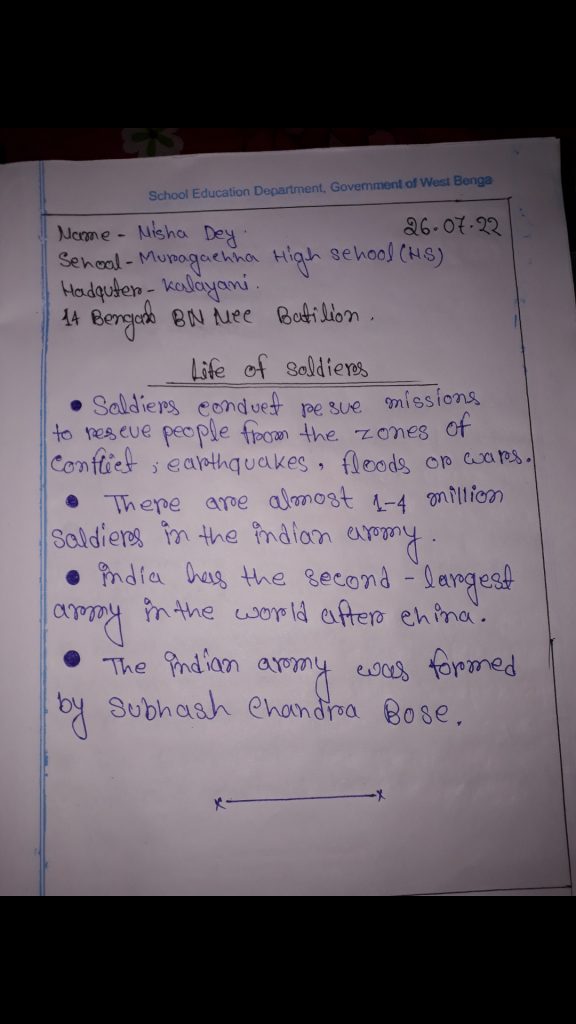 School Education Department, Government of West Benga
Name - Nisha Dey.
26.07.22
School - Muragachha High school (HS)
Hadquter - Kalayani.
14 Bengal BN Ncc Batilion.
Life of soldiers
• Soldiers conduct rescue missions
to rescue people from the zones of
conflict, earthquakes, floods or wars.
• There are almost 1-4 million
soldiers in the indian army.
• india has the second-largest
army in the world after china.
• The indian army was formed
by Subhash Chandra Bose.